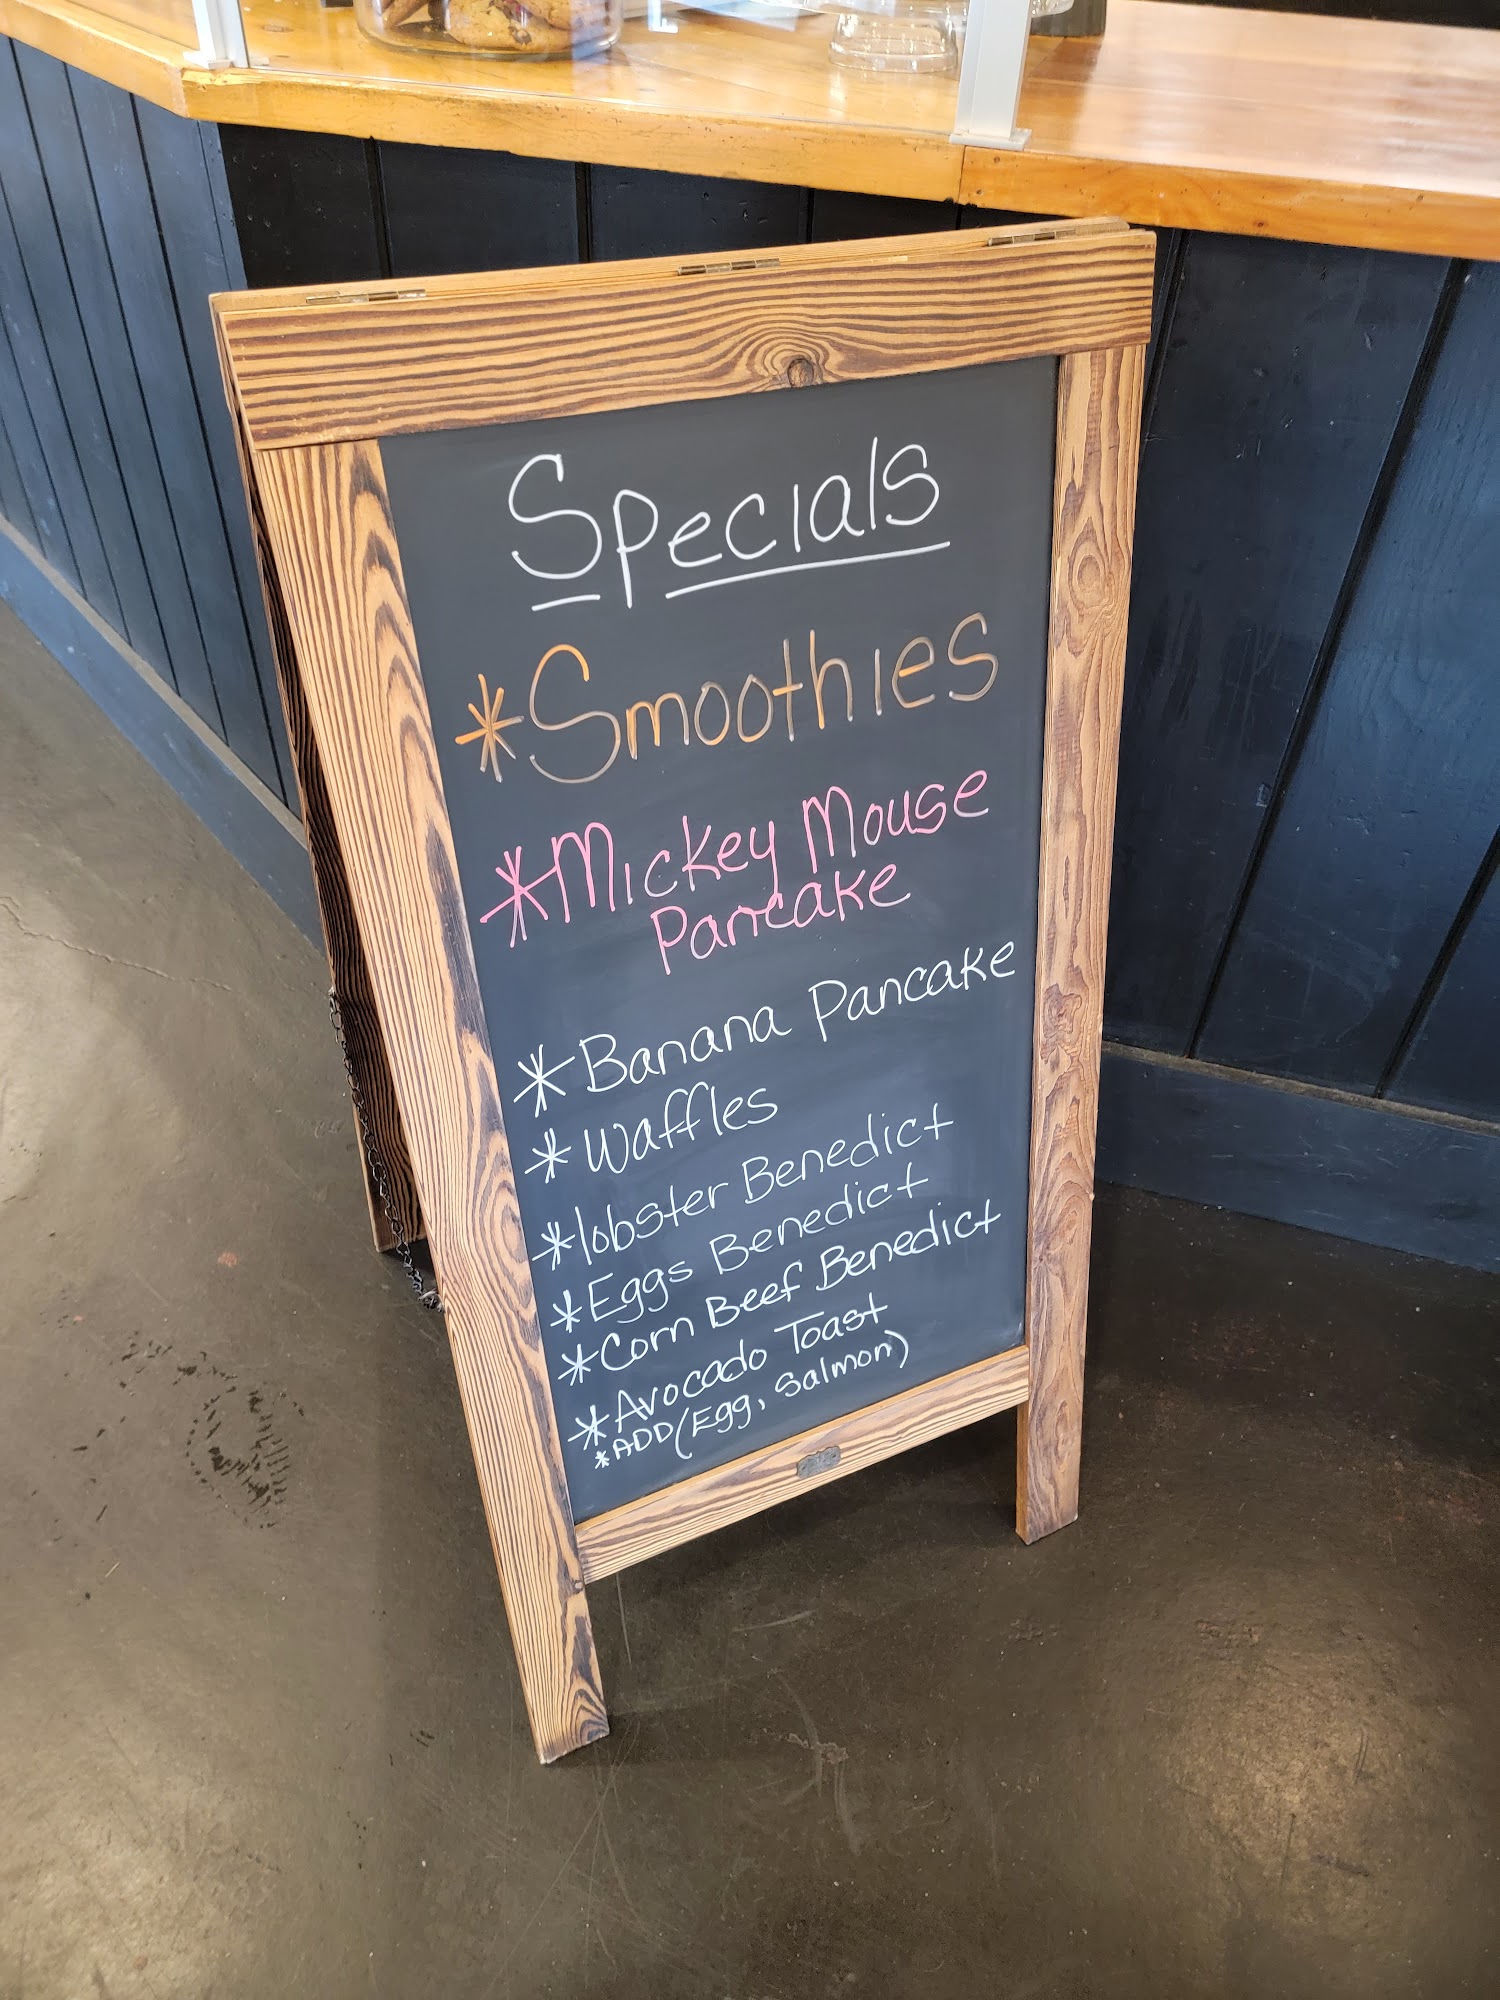 Specials
*Smoothies
*Mickey Mouse
Pancake
*Banana Pancake
*Waffles
*lobster Benedict
*Eggs Benedict
*Corn Beef Benedict
*Avocado Toast
*ADD(Egg, Salmon)